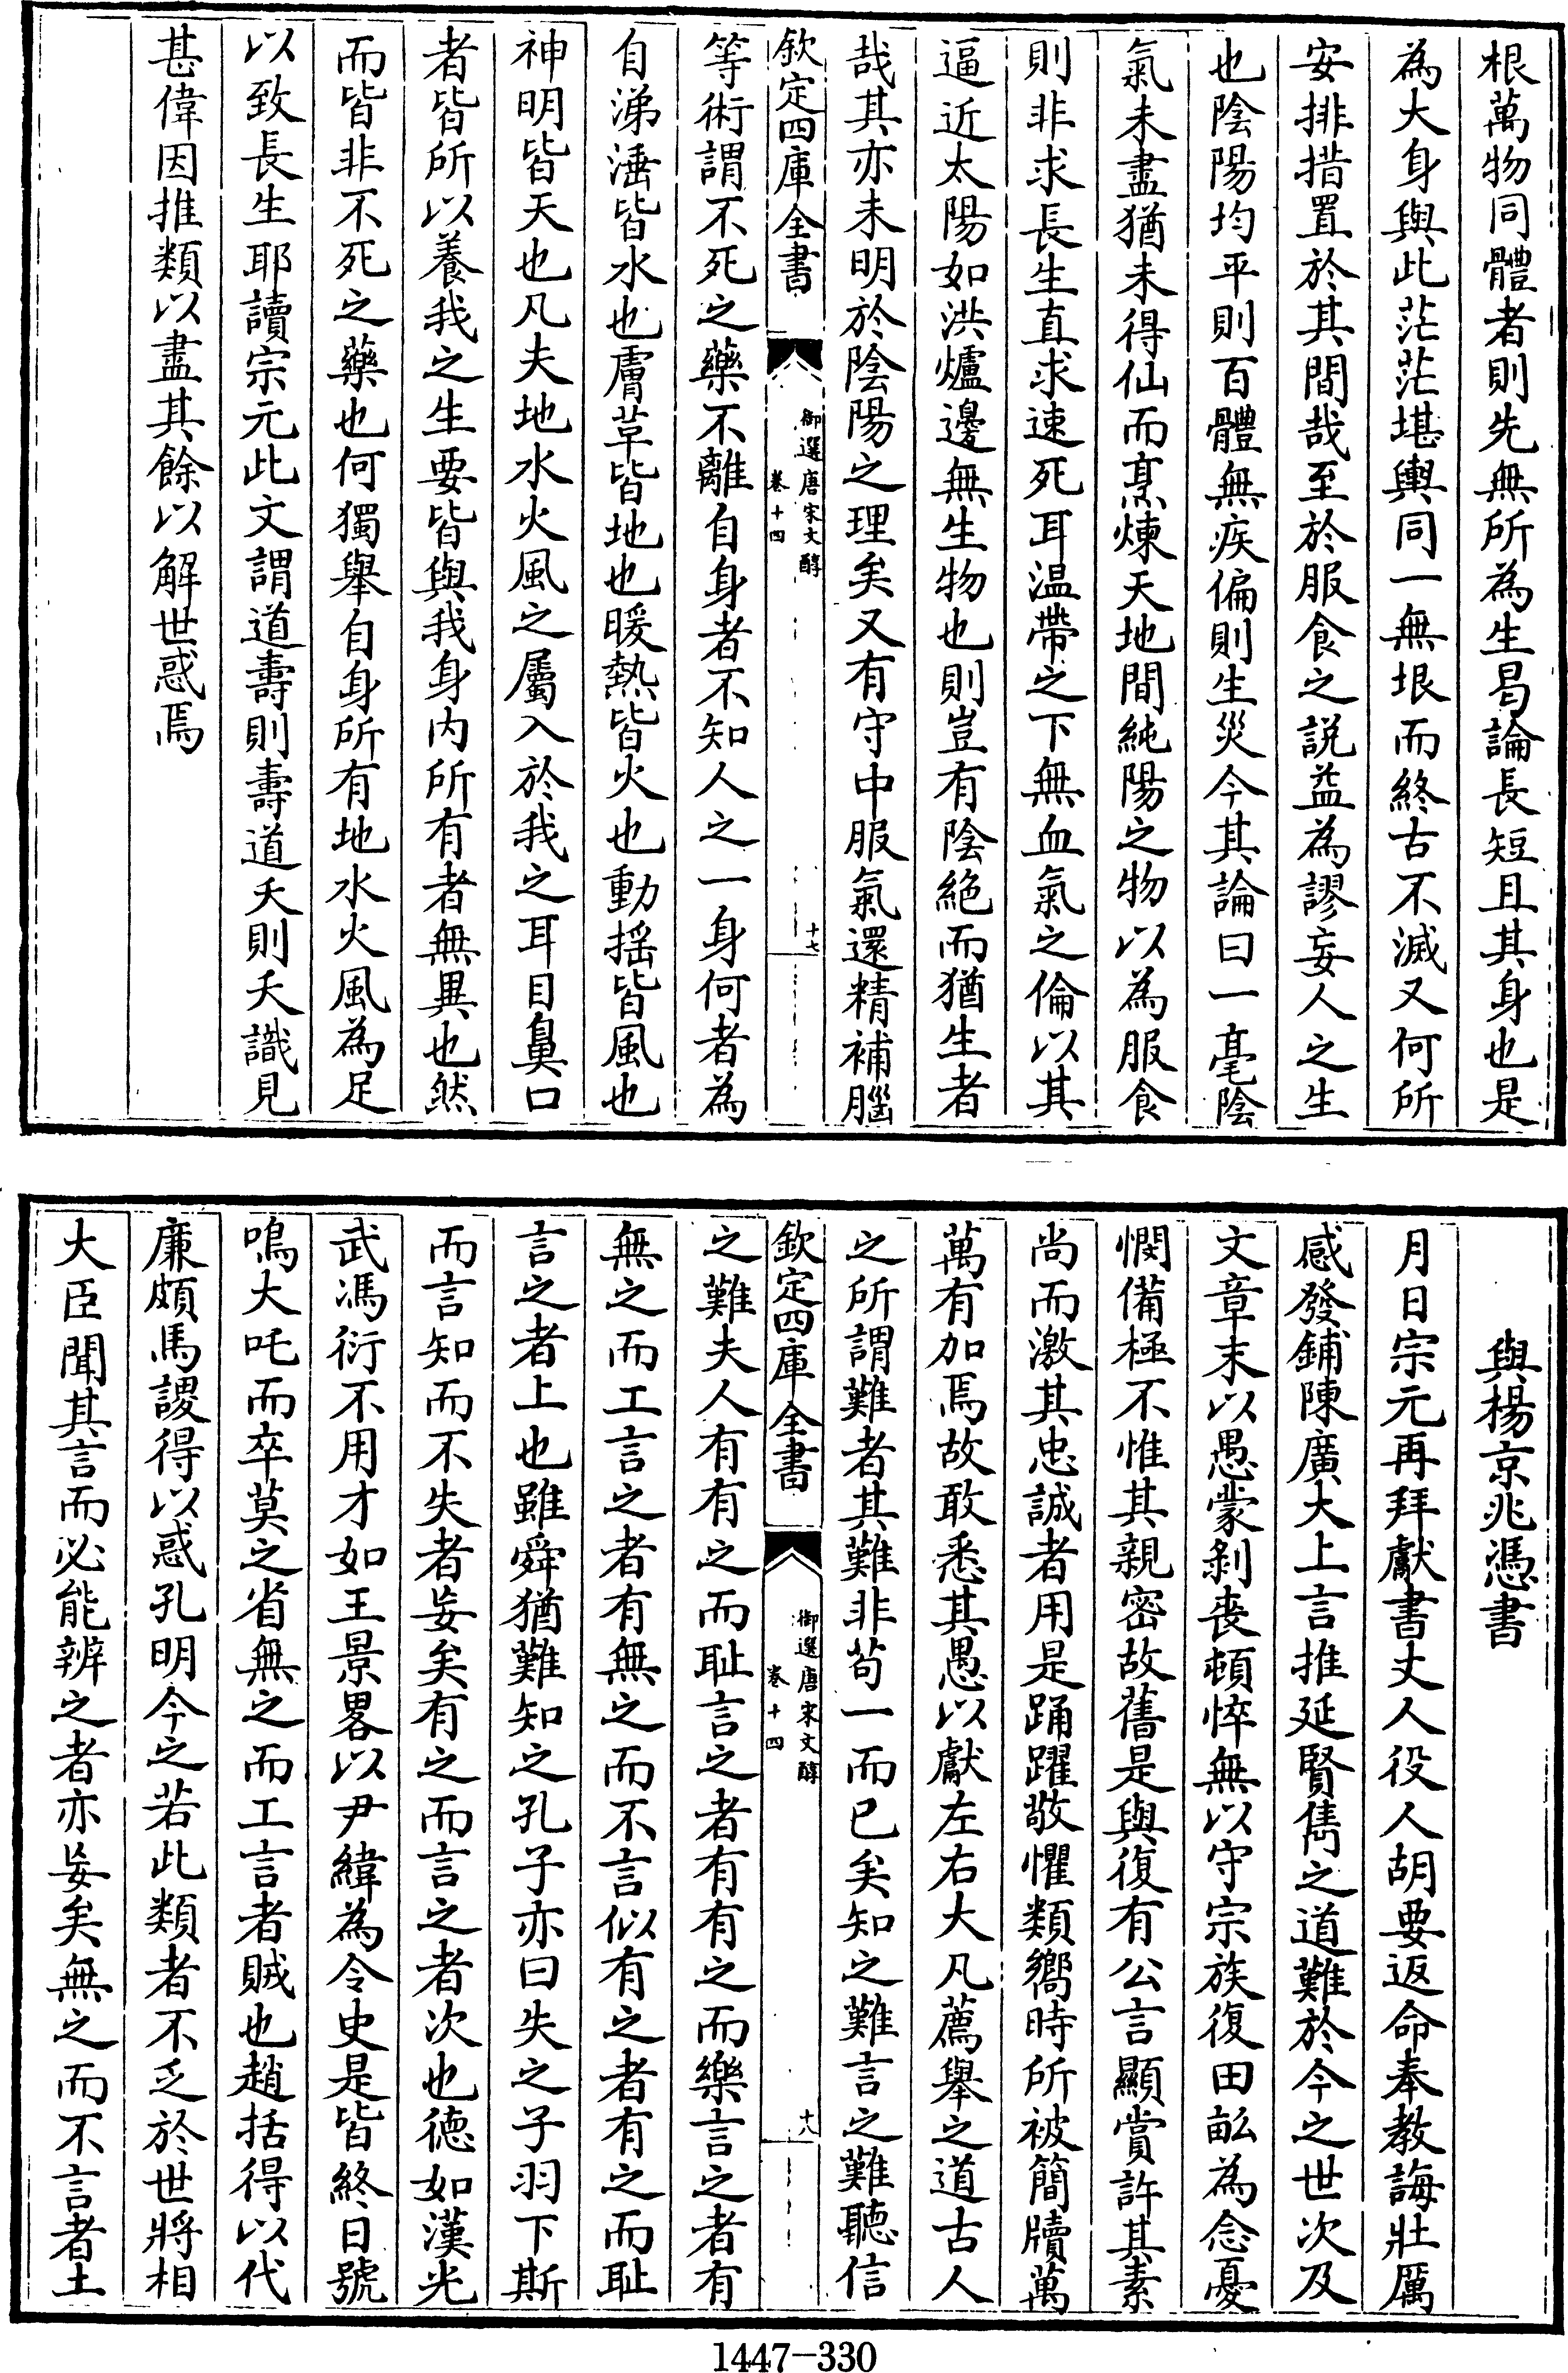 根萬物同體者則先無所為生曷論長短且其身也是
為大身與此茫茫堪輿同一無垠而終古不滅又何所
安排措置於其間哉至於服食之説益為謬妄人之生
也陰陽均平則百體無疾偏則生災今其論曰一毫陰
氣未盡猶未得仙而烹煉天地間純陽之物以為服食
則非求長生直求速死耳温帶之下無血氣之倫以其
逼近太陽如洪爐邊無生物也則豈有陰絶而猶生者
哉其亦未明於陰陽之理矣又有守中服氣還精補腦
欽定四庫全書
御選唐宋文醇
卷十四
十七
等術謂不死之藥不離自身者不知人之一身何者為
自涕湩皆水也膚革皆地也暖熱皆火也動揺皆風也
神明皆天也凡夫地水火風之屬入於我之耳目鼻口
者皆所以養我之生要皆與我身内所有者無異也然
而皆非不死之藥也何獨舉自身所有地水火風為足
以致長生耶讀宗元此文謂道壽則壽道夭則夭識見
甚偉因推類以盡其餘以解世惑焉
與楊京兆憑書
月日宗元再拜獻書丈人役人胡要返命奉教誨壯厲
感發鋪陳廣大上言推延賢雋之道難於今之世次及
文章末以愚蒙剝喪頓悴無以守宗族復田畆為念憂
憫備極不惟其親密故舊是與復有公言顯賞許其素
尚而激其忠誠者用是踊躍敬懼類嚮時所被簡牘萬
萬有加焉故敢悉其愚以獻左右大凡薦舉之道古人
之所謂難者其難非苟一而已矣知之難言之難聽信
欽定四庫全書
御選唐宋文醇
卷十四
十八
之難夫人有有之而耻言之者有有之而樂言之者有
無之而工言之者有無之而不言似有之者有之而耻
言之者上也雖舜猶難知之孔子亦曰失之子羽下斯
而言知而不失者妄矣有之而言之者次也德如漢光
武馮衍不用才如王景畧以尹緯為令史是皆終日號
鳴大吒而卒莫之省無之而工言者賊也趙括得以代
廉頗馬謖得以惑孔明今之若此類者不乏於世將相
大臣聞其言而必能辨之者亦妄矣無之而不言者土
1447-330